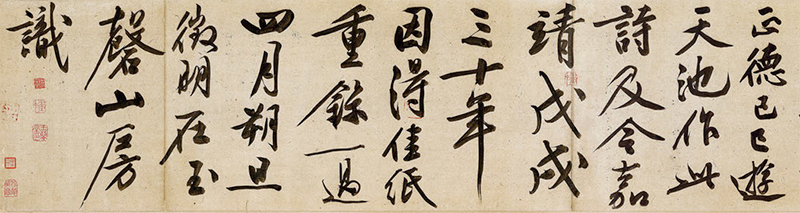 正德己巳遊
天池作此
詩及今嘉
靖戊戌
三十年
因得佳紙
重錄一過
四月朔旦
徵明在玉
磬山房
識